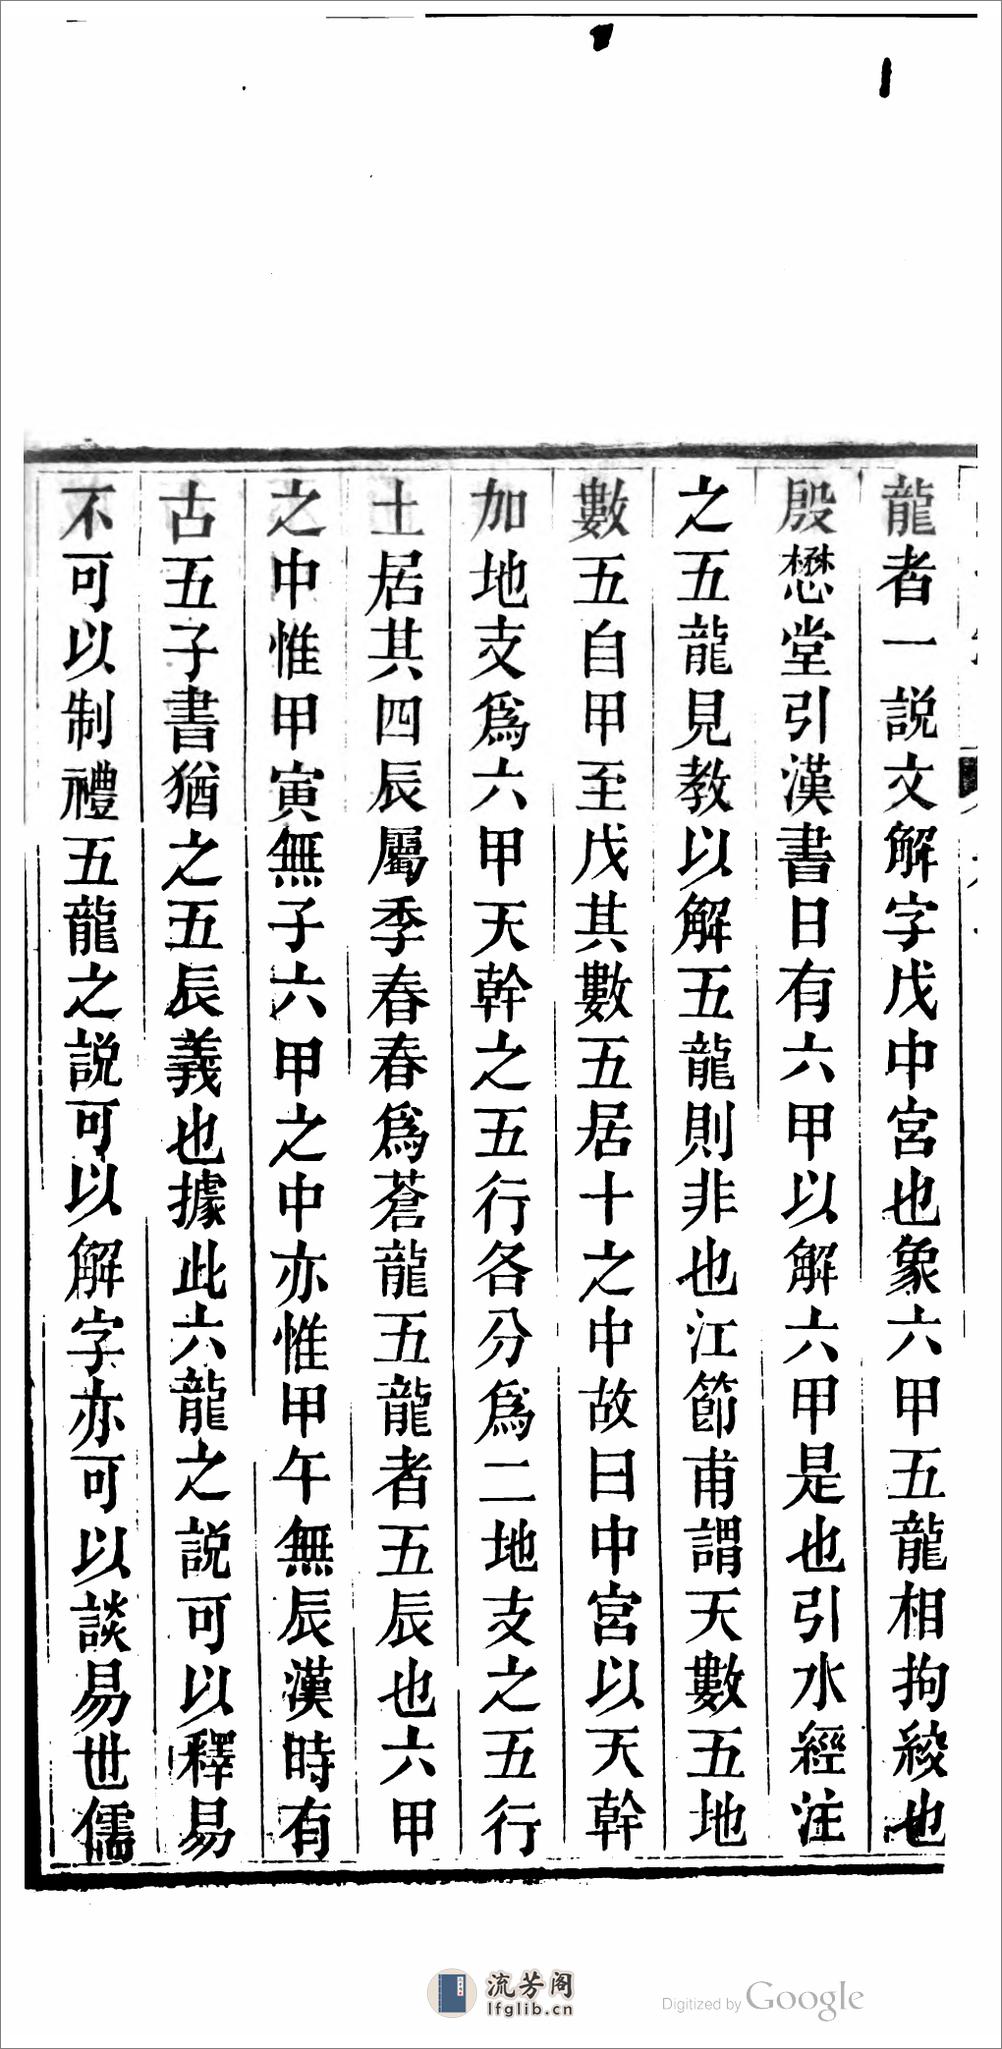 龍者一說文解字戊中宮也象六甲五龍相拘絞也
殷懋堂引漢書日有六甲以解六甲是也引水經注
之五龍見教以解五龍則非也江節甫謂天數五地
數五自甲至戊其數五居十之中故曰中宮以天幹
加地支爲六甲天幹之五行各分爲二地支之五行
土居其四辰屬季春春爲蒼龍五龍者五辰也六甲
之中惟甲寅無子六甲之中亦惟甲午無辰漢時有
古五子書猶之五辰義也據此六龍之說可以釋易
不可以制禮五龍之說可以解字亦可以談易世儒
流芳阁
lfglib.cn
Digitized by Google